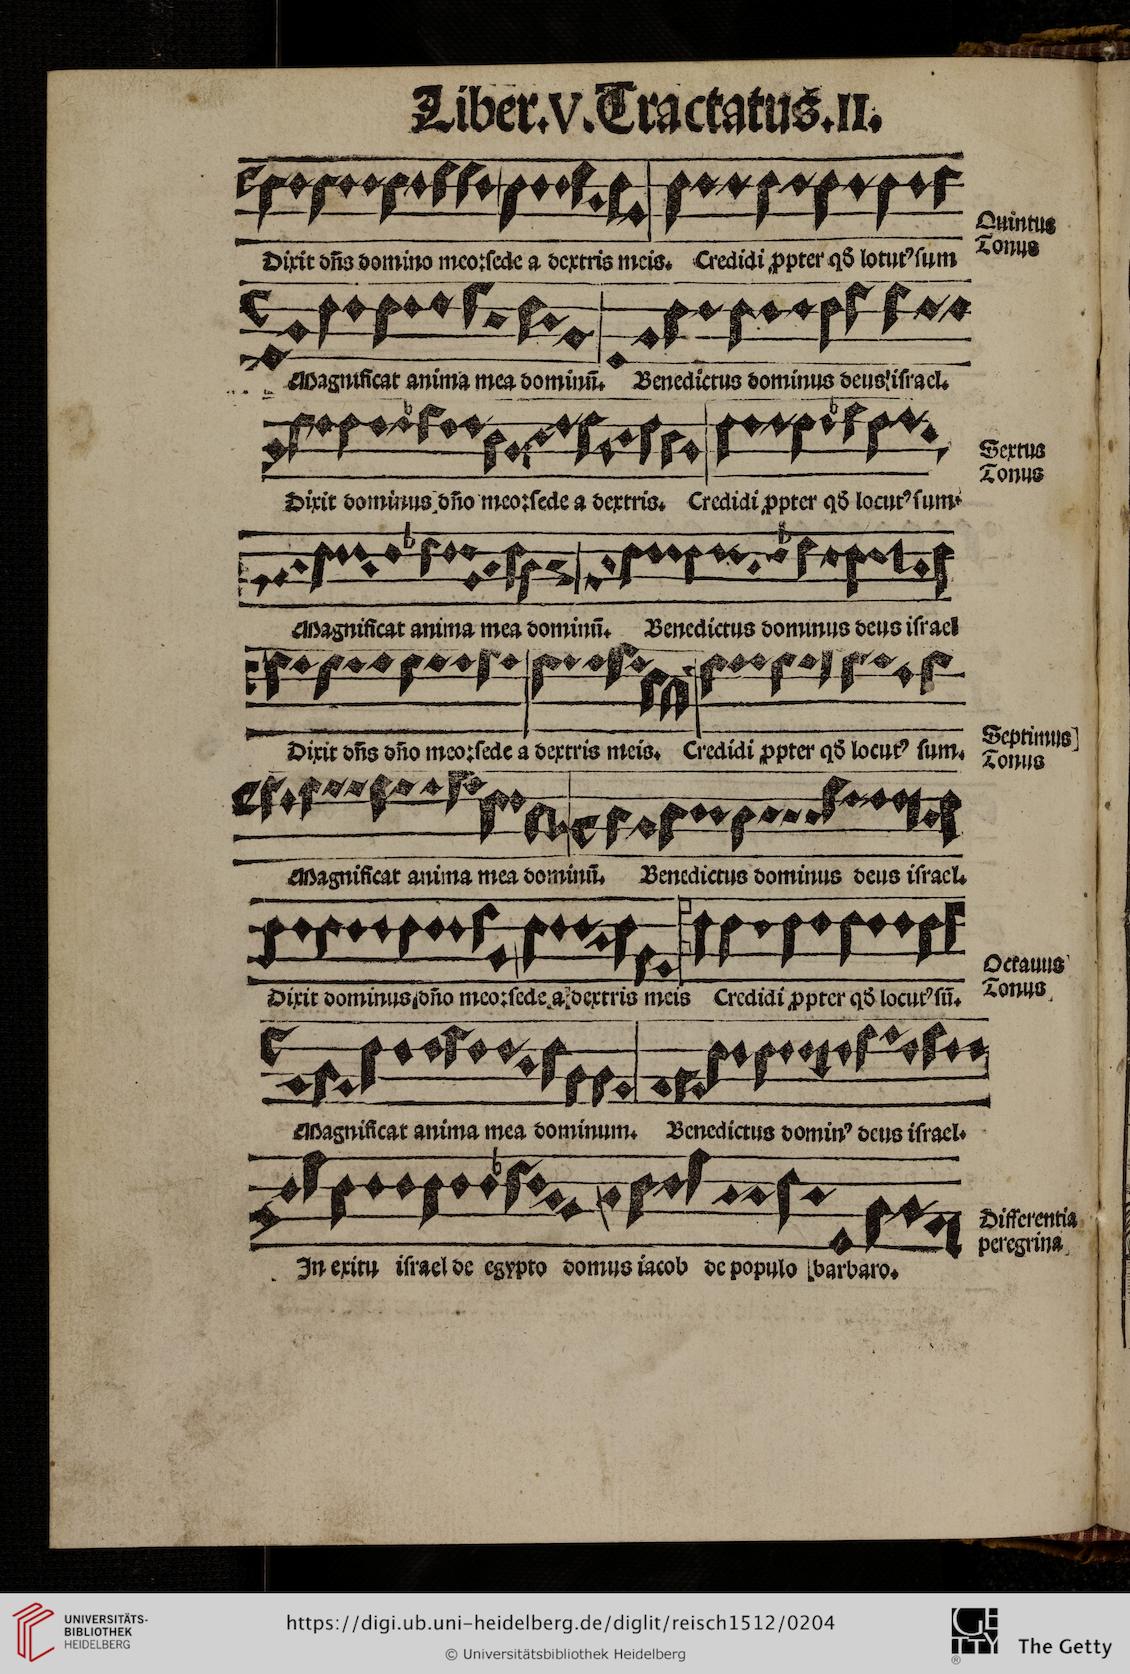 Liber.V.Tractatus.II.
Quintus
Tonus
Dixit dn̄s domino meo:ſede a dextris meis. Credidi ꝓpter qđ lotutꝰ ſum
Magnificat anima mea dominū. Benedictus dominus deus iſrael.
Sextus
Tonus
Dixit dominus dn̄o meo:ſede a dextris. Credidi ꝓpter qđ locutꝰ ſum.
Magnificat anima mea dominū. Benedictus dominus deus iſrael
Septimus
Tonus
Dixit dn̄s dn̄o meo:ſede a dextris meis. Credidi ꝓpter qđ locutꝰ ſum.
Magnificat anima mea dominū. Benedictus dominus deus iſrael.
Octauus
Tonus
Dixit dominus dn̄o meo:ſede a dextris meis Credidi ꝓpter qđ locutꝰ ſū.
Magnificat anima mea dominum. Benedictus dominꝰ deus iſrael.
Differentia
peregrina
In exitu iſrael de egypto domus iacob de populo barbaro.
UNIVERSITÄTS-
BIBLIOTHEK
HEIDELBERG
https://digi.ub.uni-heidelberg.de/diglit/reisch1512/0204
© Universitätsbibliothek Heidelberg
GETTY
The Getty